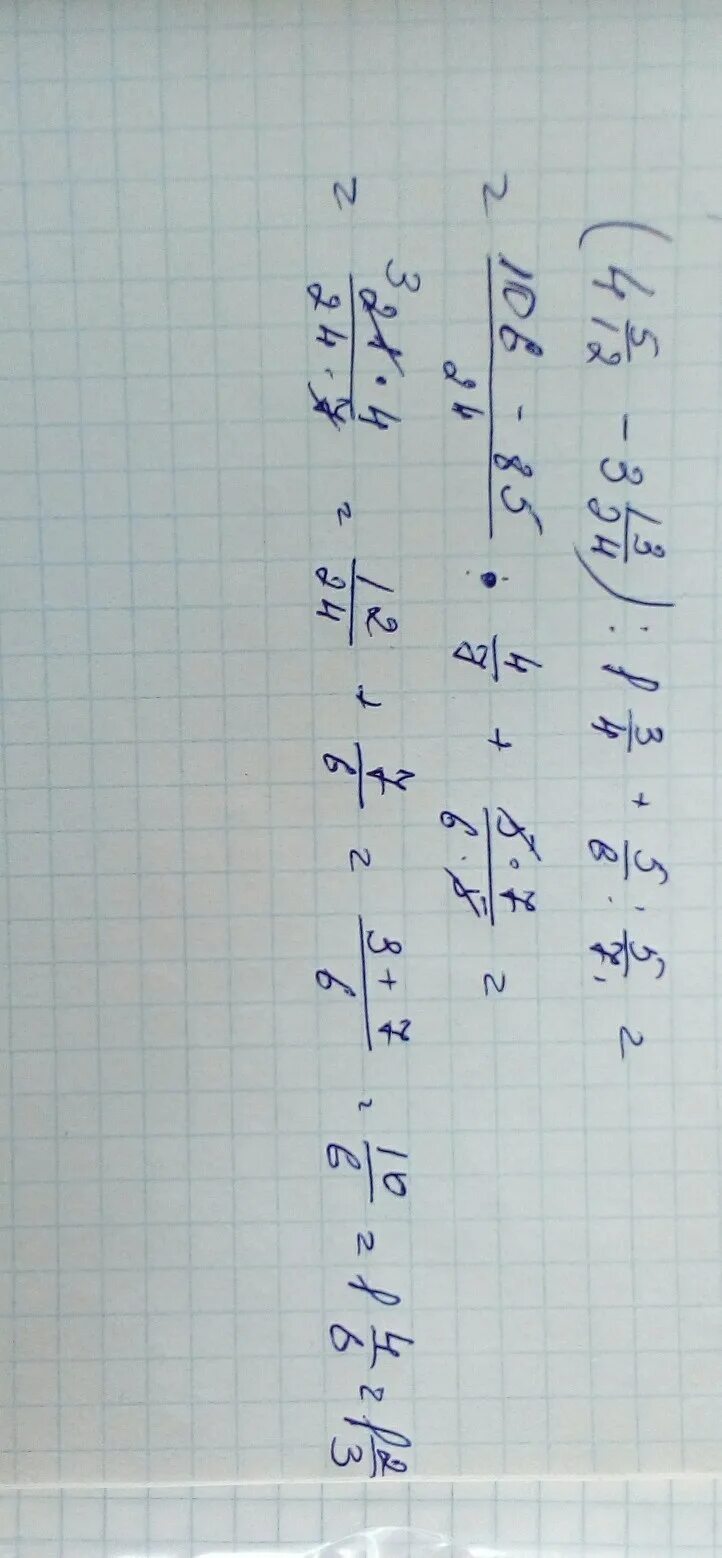 (4 5/12 - 3 13/24) : 1 3/4 + 5/6 : 5/7 =
= (106 - 85)/24 · 4/7 + (5 · 7)/(6 · 5) =
= (3 21 · 4)/(24 · 7) = 12/24 + 7/6 = (3 + 7)/6 = 10/6 = 1 4/6 = 1 2/3